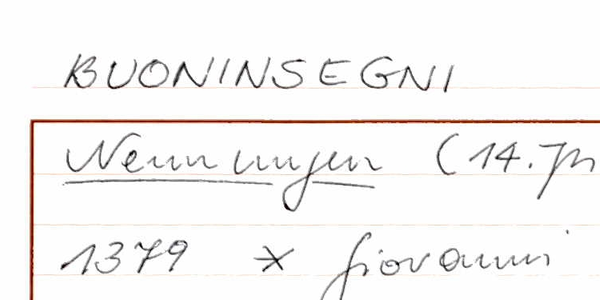 BUONINSEGNI
Nennungen (14. Jh
1379 * Giovanni